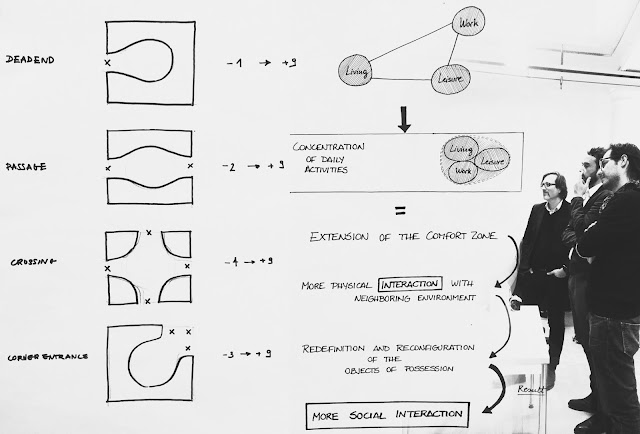 DEADEND
-1 → +9
PASSAGE
-2 → +9
CROSSING
-4 → +9
CORNER ENTRANCE
-3 → +9
Work
Living
Leisure
CONCENTRATION
OF DAILY
ACTIVITIES
Living
Leisure
Work
=
EXTENSION OF THE COMFORT ZONE
MORE PHYSICAL INTERACTION WITH
NEIGHBORING ENVIRONMENT
REDEFINITION AND RECONFIGURATION
OF THE
OBJECTS OF POSSESSION
Result
MORE SOCIAL INTERACTION